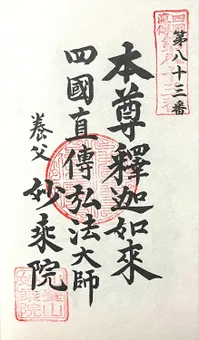 第八十三番
本尊釋迦如來
四國直傳弘法大師
養父
妙乘院